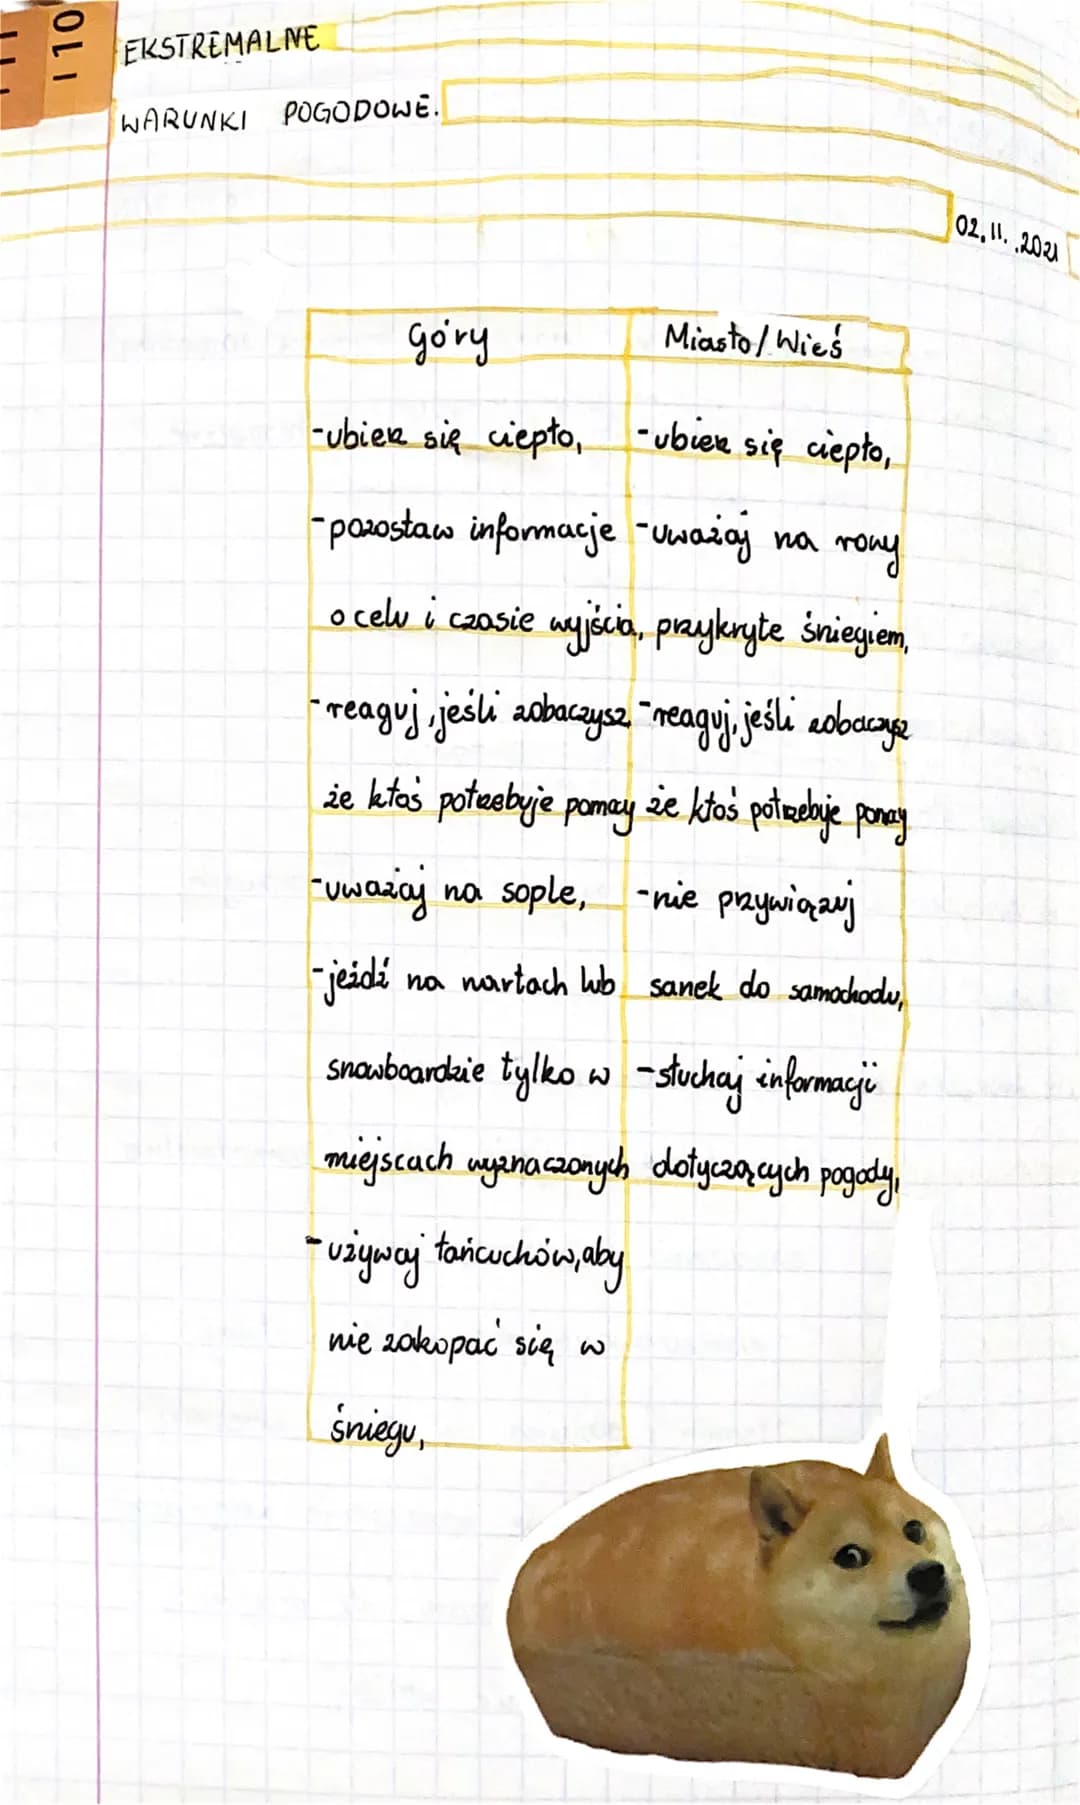 110
EKSTREMALNE
WARUNKI POGODOWE.
02.11.2021
Góry
-ubierz się ciepło,
-pozostaw informacje
o celu i czasie wyjścia,
-reaguj, jeśli zobaczysz,
że ktoś potrzebuje pomocy
-uważaj na sople,
-jeżdź na nartach lub
snowboardzie tylko w
miejscach wyznaczonych
-używaj łańcuchów, aby
nie zakopać się w
śniegu,
Miasto/Wieś
-ubierz się ciepło,
-uważaj na rowy
przykryte śniegiem,
-reaguj, jeśli zobaczysz
że ktoś potrzebuje pomocy
-nie przywiązuj
sanek do samochodu,
-słuchaj informacji
dotyczących pogody,